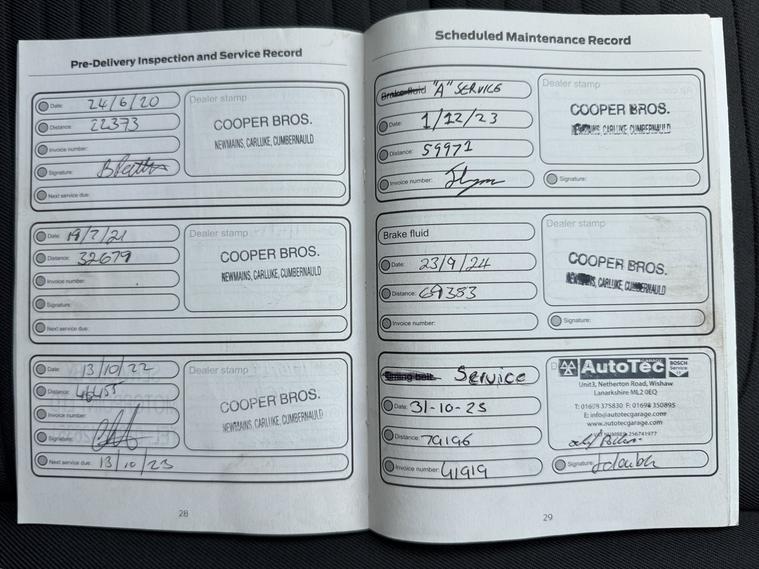 Pre-Delivery Inspection and Service Record
Date: 24/6/20
Distance: 22373
Invoice number:
Signature:
Next service due:
Dealer stamp
COOPER BROS.
NEWMAINS, CARLUKE, CUMBERNAULD
Date: 19/7/21
Distance: 32679
Invoice number:
Signature:
Next service due:
Dealer stamp
COOPER BROS.
NEWMAINS, CARLUKE, CUMBERNAULD
Date: 13/10/22
Distance: 46455
Invoice number:
Signature:
Next service due: 13/10/23
Dealer stamp
COOPER BROS.
NEWMAINS, CARLUKE, CUMBERNAULD
28
Scheduled Maintenance Record
Brake fluid "A" SERVICE
Date: 1/12/23
Distance: 59971
Invoice number:
Dealer stamp
COOPER BROS.
NEWMAINS, CARLUKE, CUMBERNAULD
Signature:
Brake fluid
Date: 23/9/24
Distance: 69383
Invoice number:
Dealer stamp
COOPER BROS.
NEWMAINS, CARLUKE, CUMBERNAULD
Signature:
Timing belt SERVICE
Date: 31-10-25
Distance: 79196
Invoice number: 41919
AutoTec GARAGE
BOSCH
Service
Unit3, Netherton Road, Wishaw
Lanarkshire ML2 0EQ
T: 01698 375830 F: 01698 350895
E: info@autotecgarage.com
www.autotecgarage.com
256741977
Signature:
29